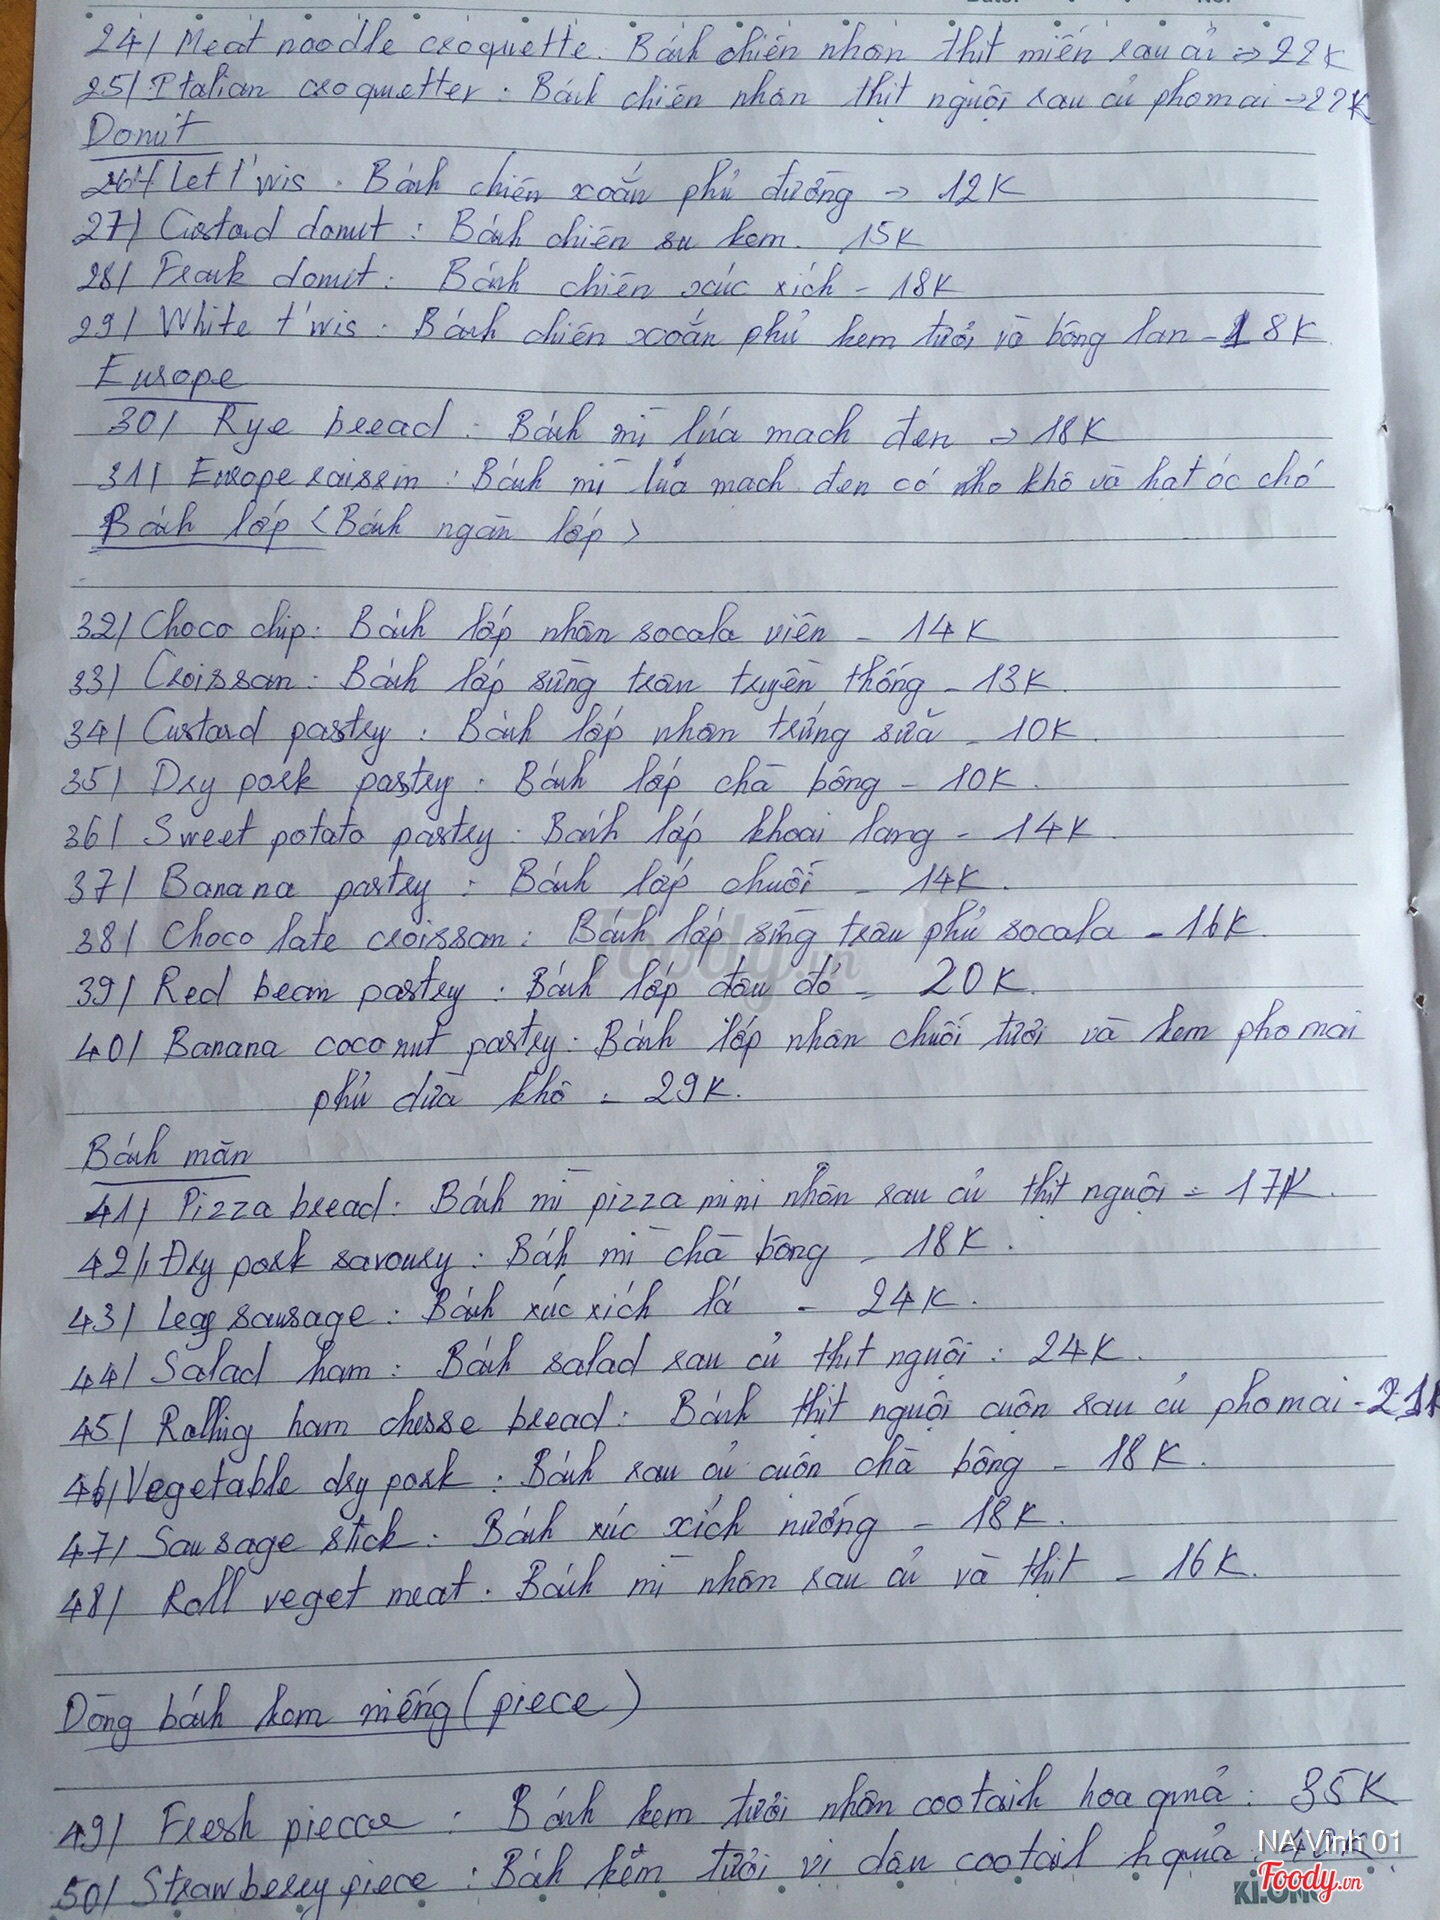 24/ Meat noodle croquette. Bánh chiên nhân thịt miến rau củ => 22K
25/ Italian croquetter: Bánh chiên nhân thịt nguội rau củ phomai -> 22K
Donut
26/ Let t'wis. Bánh chiên xoắn phủ đường -> 12K
27/ Custard donut: Bánh chiên su kem. 15K
28/ Frank donut: Bánh chiên xúc xích - 18K
29/ White t'wis. Bánh chiên xoắn phủ kem tươi và bông lan - 18K
Europe
30/ Rye bread: Bánh mì lúa mạch đen => 18K
31/ Europe raissin: Bánh mì lúa mạch đen có nho khô và hạt óc chó
Bánh lớp <Bánh ngàn lớp>
32/ Choco chip: Bánh lớp nhân socala viên - 14K
33/ Croissan: Bánh lớp sừng trâu truyền thống - 13K.
34/ Custard pastry: Bánh lớp nhân trứng sữa - 10K.
35/ Dry pork pastry: Bánh lớp chà bông - 10K.
36/ Sweet potato pastry. Bánh lớp khoai lang - 14K.
37/ Banana pastry: Bánh lớp chuối - 14K.
38/ Choco late croissan: Bánh lớp sừng trâu phủ socala - 16K.
39/ Red bean pastry: Bánh lớp đậu đỏ - 20K.
40/ Banana coconut pastry: Bánh lớp nhân chuối tươi và kem pho mai
phủ dừa khô - 29K.
Bánh mặn
41/ Pizza bread: Bánh mì pizza mini nhân rau củ thịt nguội - 17K.
42/ Dry pork savoury: Báh mì chà bông - 18K.
43/ Leag sausage: Bánh xúc xích lá - 24K.
44/ Salad ham: Bánh salad rau củ thịt nguội: 24K.
45/ Rollhig ham chesse bread: Bánh thịt nguội cuộn rau củ pho mai - 21K
46/ Vegetable dry pork: Bánh rau củ cuộn chà bông - 18K.
47/ Sausage stick: Bánh xúc xích nướng - 18K.
48/ Roll veget meat. Bánh mì nhân rau củ và thịt - 16K.
Dòng bánh kem miếng (piece)
49/ Fresh piecce: Bánh kem tươi nhân cootaih hoa quả: 35K
50/ Strawberry piece: Báh kem tươi vị dâu cootail h quả:
NA Vinh 01
Foody.vn
KLONG
Foody.vn